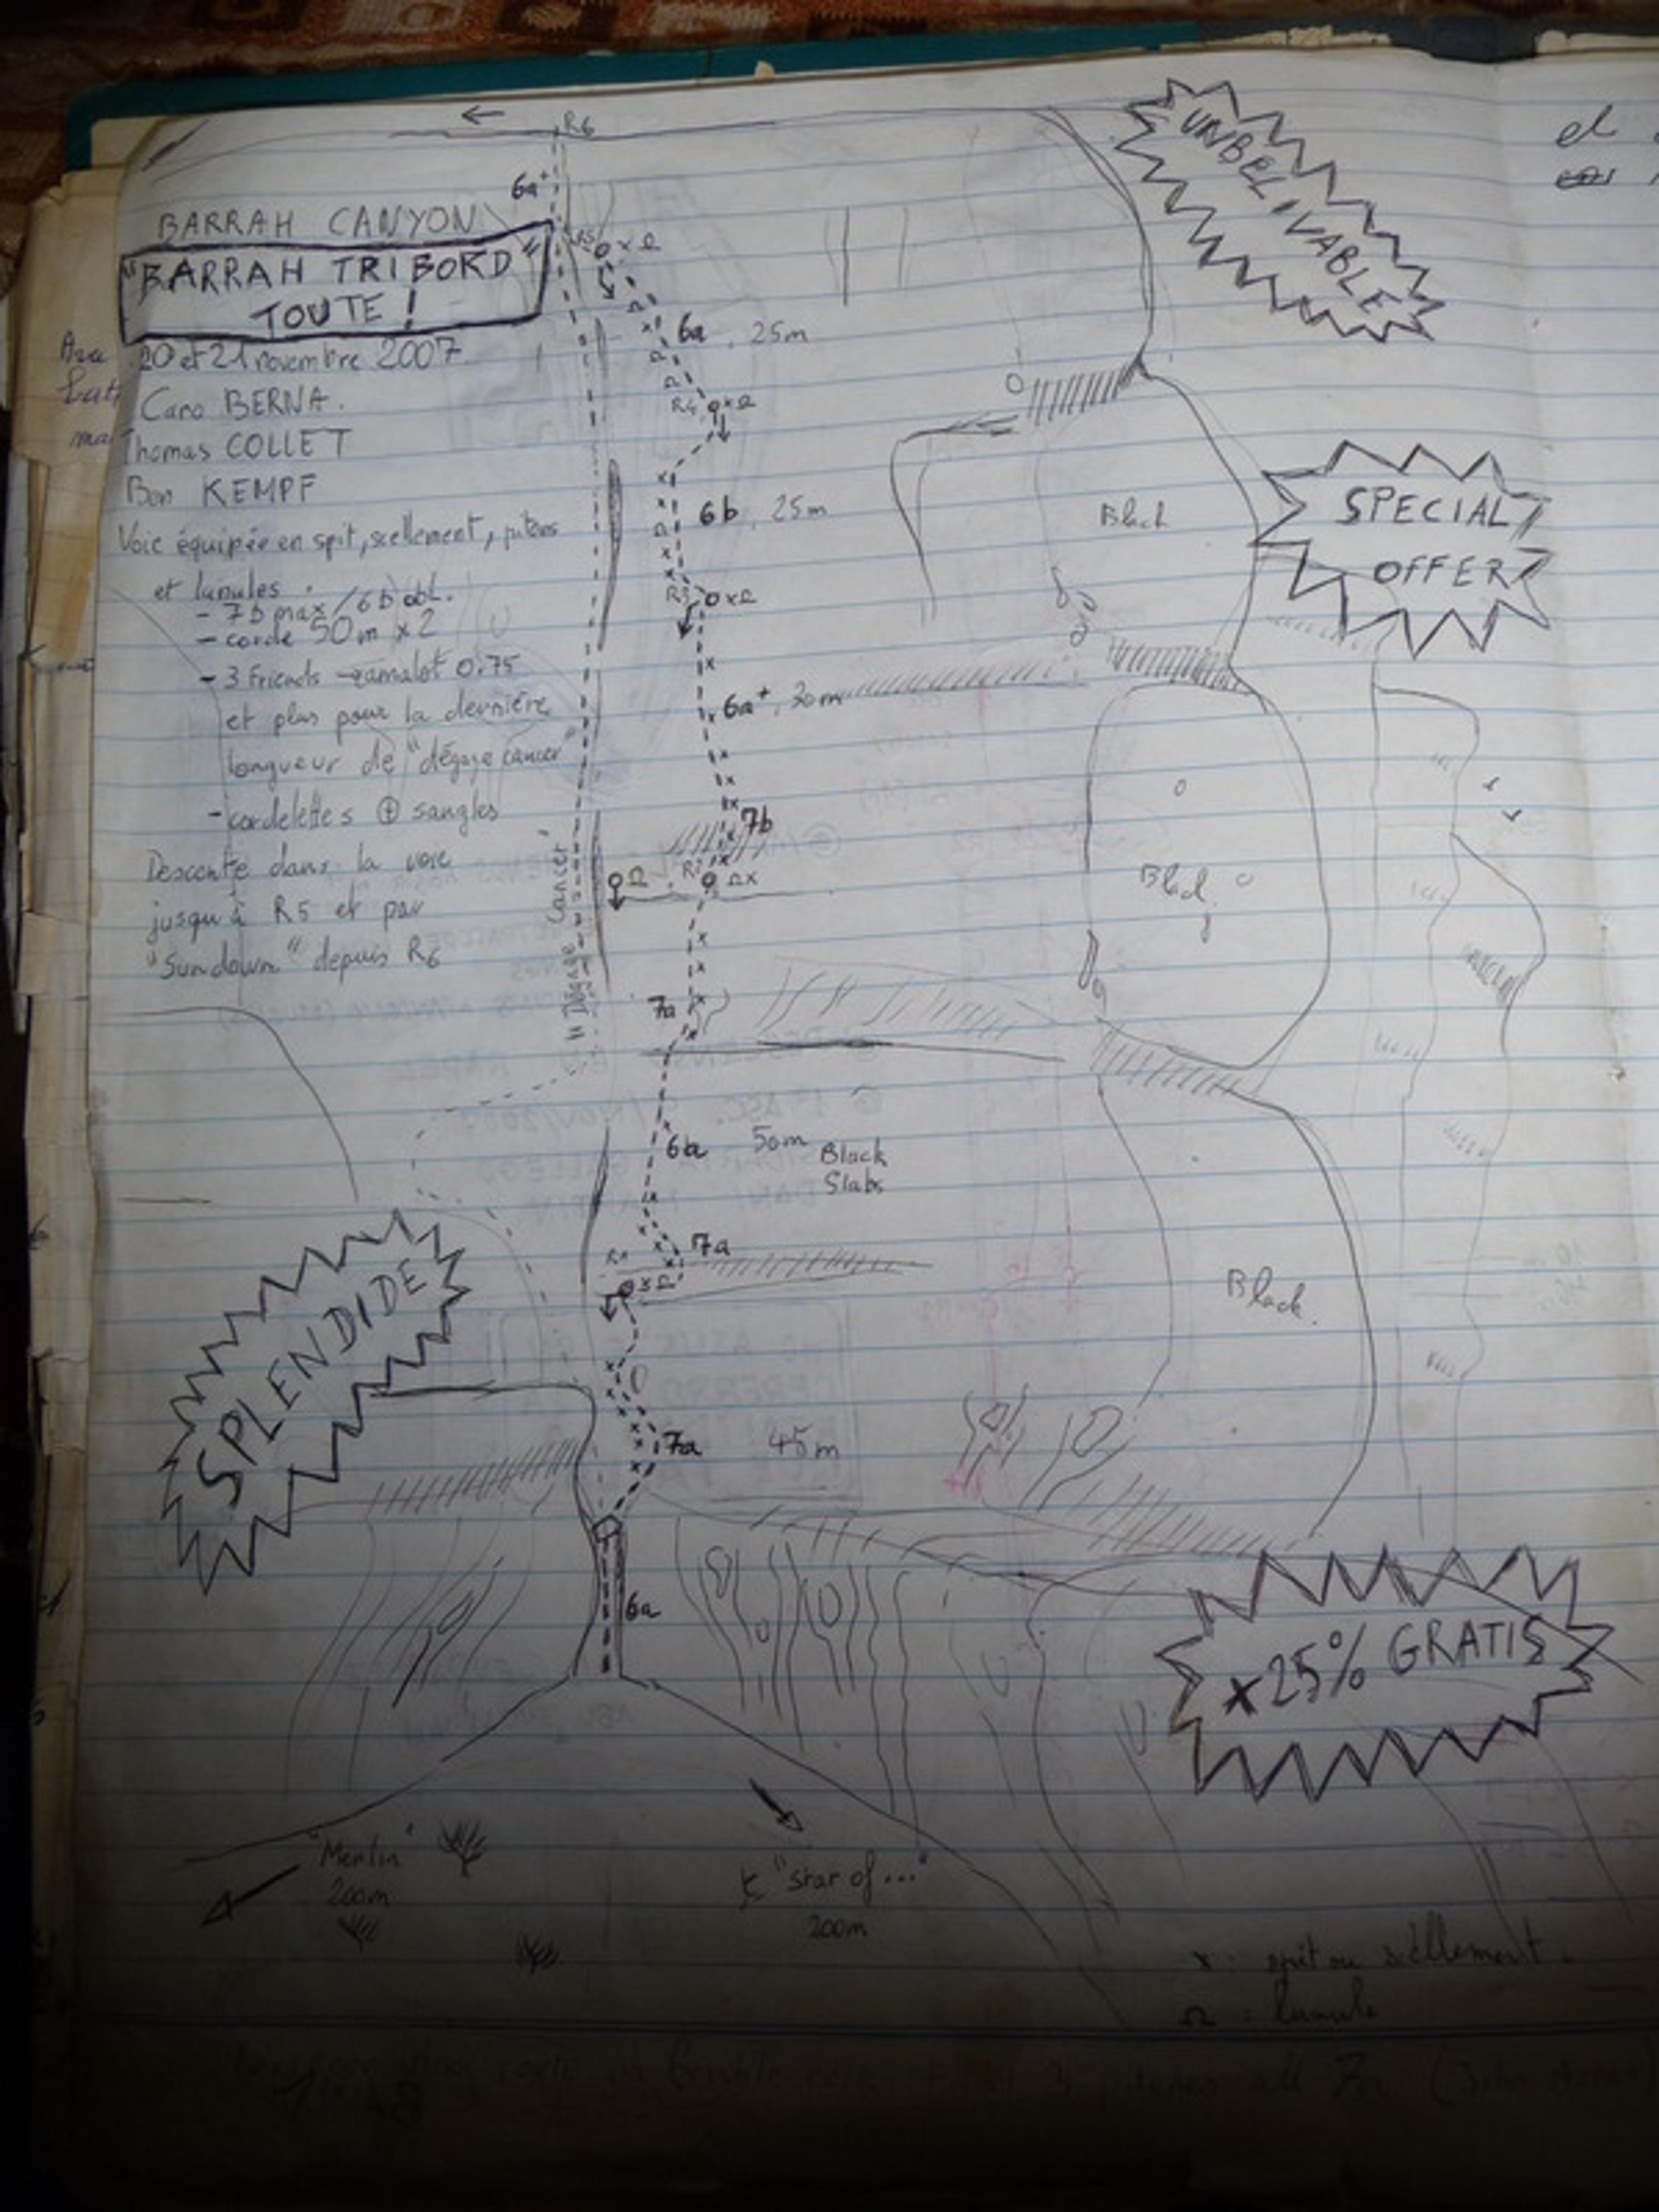 R6
6a+
BARRAH CANYON
"BARRAH TRIBORD"
TOUTE !
20 et 21 novembre 2007
Caro BERNA.
Thomas COLLET
Ben KEMPF
Voie équipée en spit, scellement, pitons
et lunules.
- 7b max / 6b obl.
- corde 50m x 2
- 3 Friends camalot 0.75
et plus pour la dernière
longueur de "dégage cancer"
- cordelettes ⊕ sangles
Descente dans la voie
jusqu'à R5 et par
"Sundown" depuis R6
UNBELIVABLE
SPECIAL
OFFER
R5
x Ω
6a, 25m
R4 x Ω
6b, 25m
R3 x Ω
6a+, 30m
7b
Ω
R2 Ω x
"Dégage Cancer"
7a
6a 50m
Black
Slabs
7a
R1
x Ω
7a 45m
6a
Black
Black
Black.
SPLENDIDE
x 25% GRATIS
"Merlin"
200m
"Star of..."
200m
x : spit ou scellement.
Ω : lunule